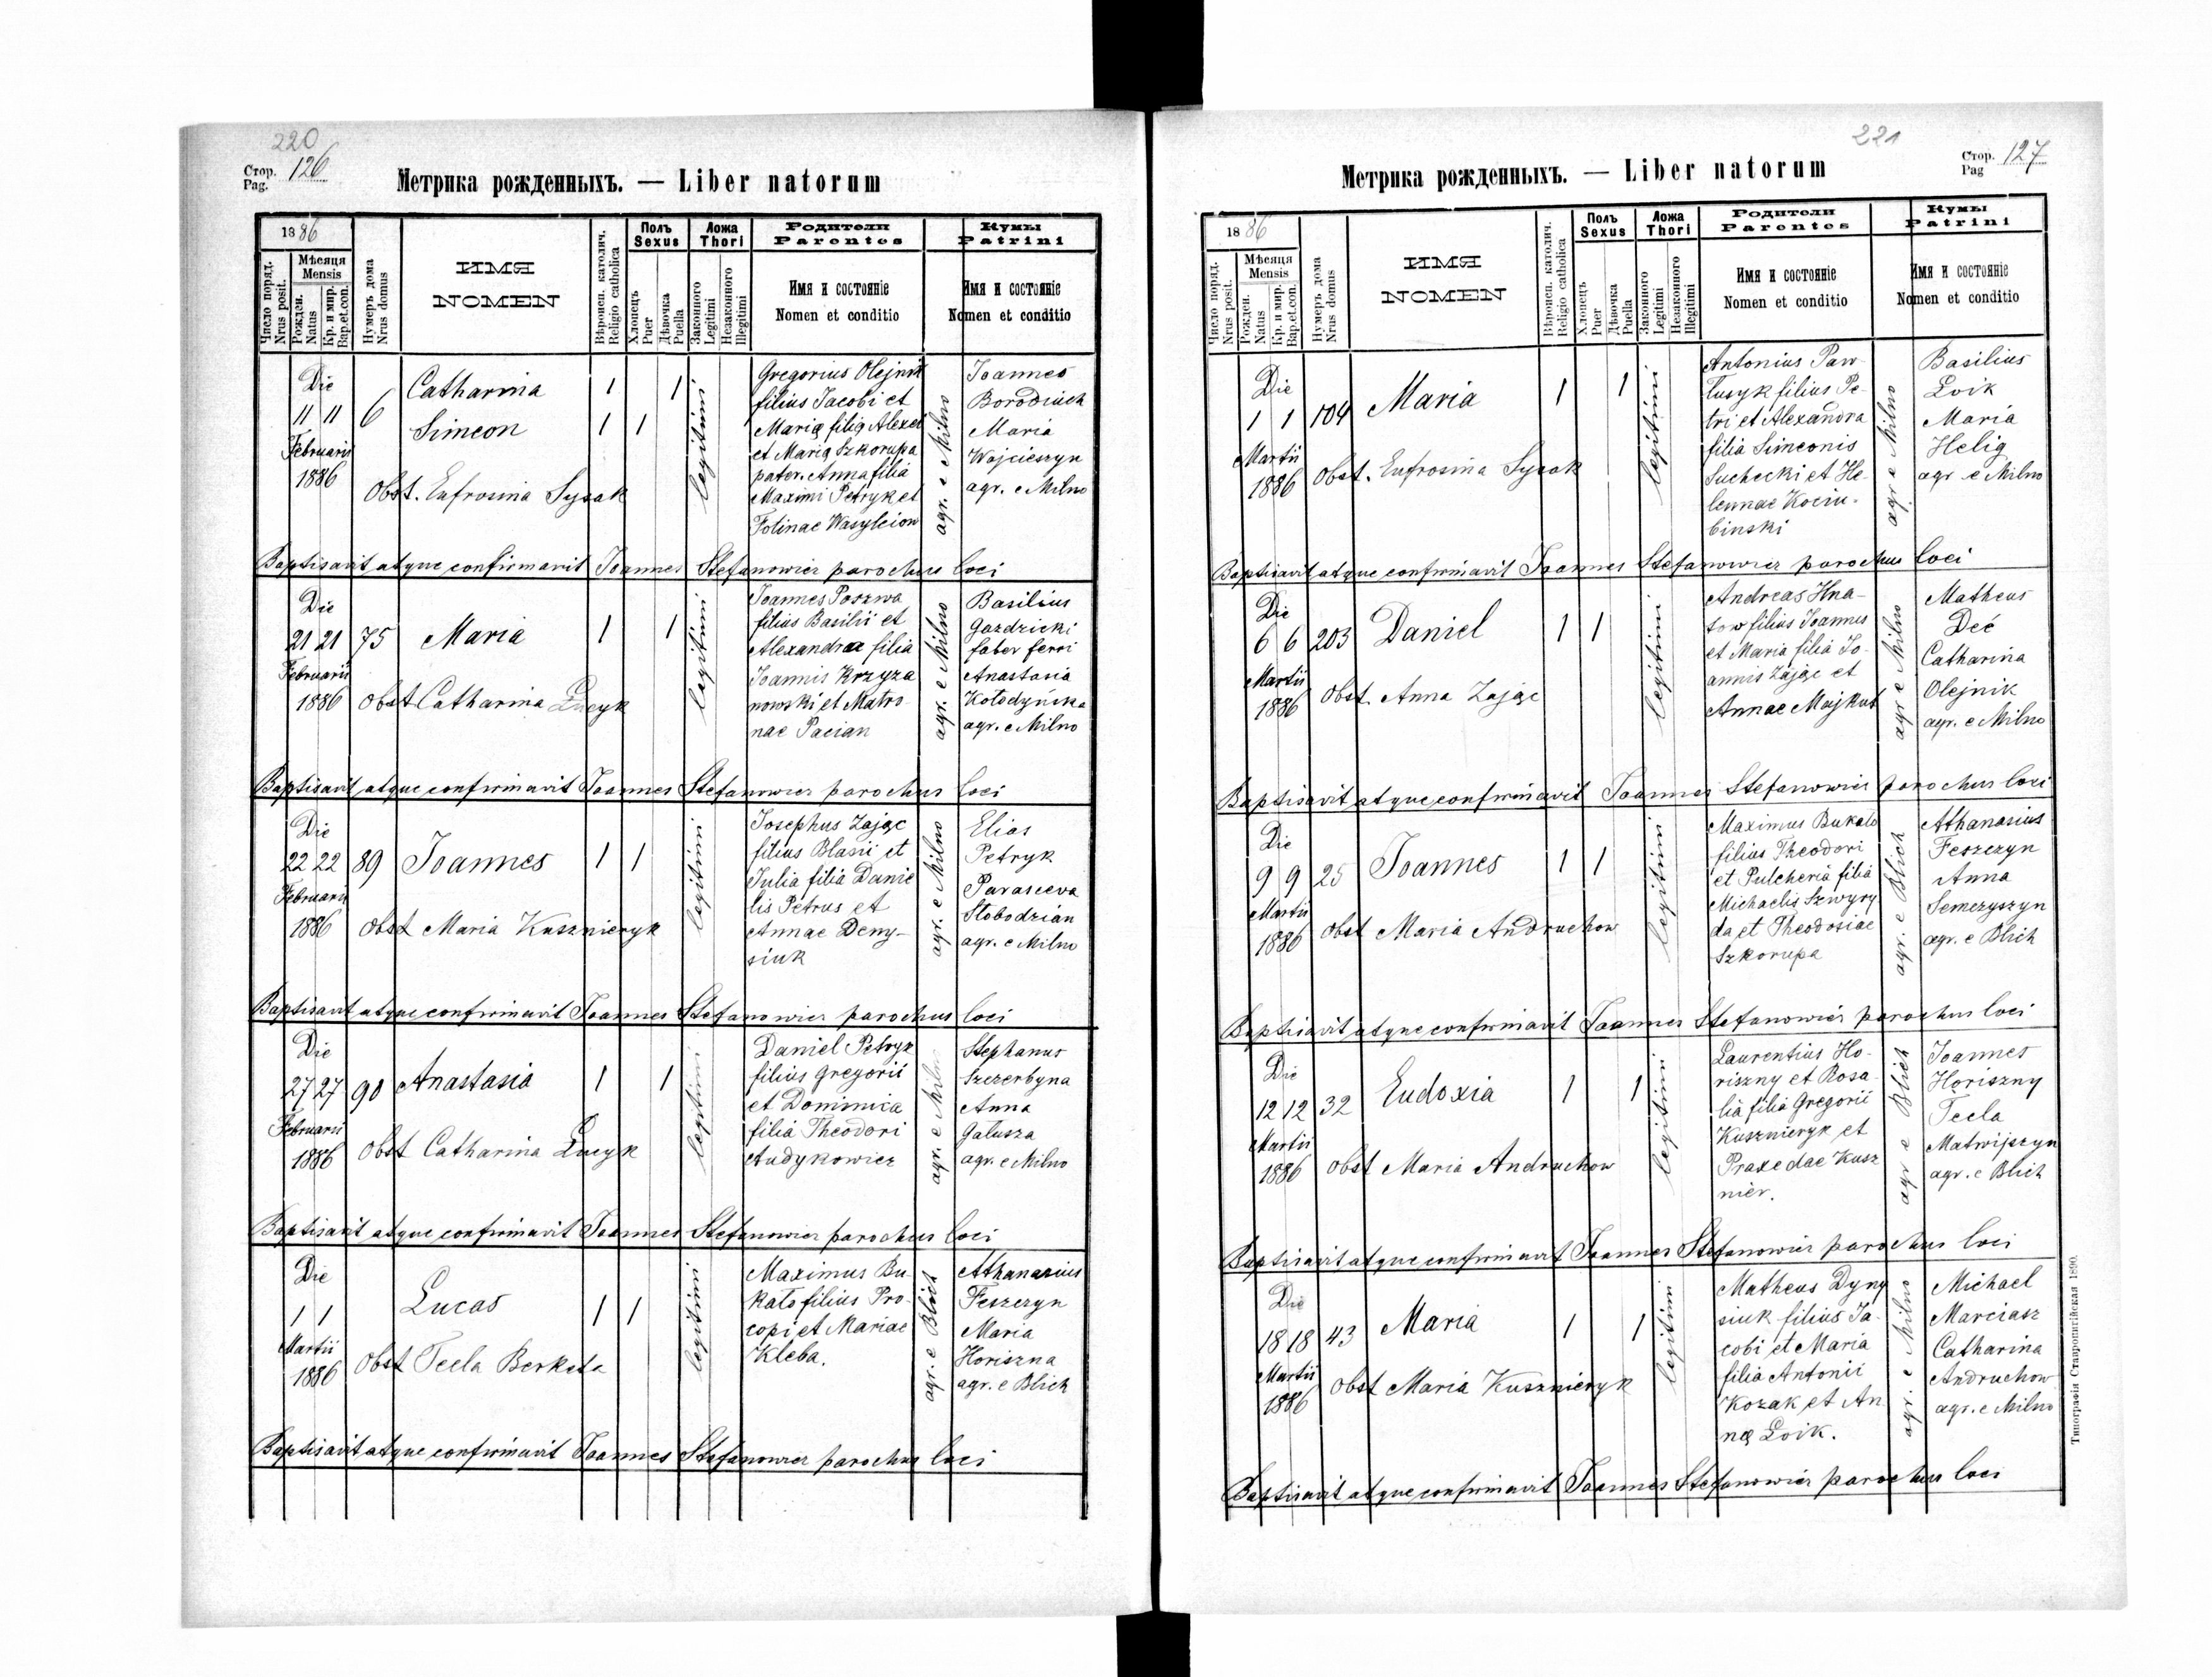 220
Стор. 126
Pag.
Метрика рожденныхъ. — Liber natorum
1886
Число поряд.
Nrus posit.
Мѣсяця
Mensis
Рожден.
Natus
Кр. и мир.
Bap.et.con.
Нумеръ дома
Nrus domus
ИМЯ
NOMEN
Вѣроисп. католич.
Religio catholica
Полъ
Sexus
Хлопецъ
Puer
Дѣвочка
Puella
Ложа
Thori
Законного
Legitimi
Незаконного
Illegitimi
Родители
Parentes
Имя и состояніе
Nomen et conditio
Кумы
Patrini
Имя и состояніе
Nomen et conditio
Die
11 11
Februarii
1886
6
Catharina 1 1
Simeon 1 1
Obst. Eufrosina Sysak
legitimi
Gregorius Olejnik
filius Jacobi et
Mariæ filiæ Alexei
et Mariæ Szkorupa
pater. Anna filia
Maximi Petryk et
Fotinae Wasylciow
agr. e Milno
Joannes
Borodiuch
Maria
Wojcieszyn
agr. e Milno
Baptisavit atque confirmavit Joannes Stefanowicz parochus loci
Die
21 21
Februarii
1886
75
Maria 1 1
Obst Catharina Łucyk
legitimi
Joannes Poszwa
filius Basilii et
Alexandra filia
Joannis Krzyza
nowski et Matro
nae Pacian
agr. e Milno
Basilius
Gazdzicki
faber ferri
Anastasia
Kołodyńska
agr. e Milno
Baptisavit atque confirmavit Joannes Stefanowicz parochus loci
Die
22 22
Februarii
1886
89
Joannes 1 1
Obst Maria Kusznieryk
legitimi
Josephus Zając
filius Blasii et
Julia filia Danie
lis Petrus et
Annae Deny-
siuk
agr. e Milno
Elias
Petryk
Parasceva
Słobodzian
agr. e Milno
Baptisavit atque confirmavit Joannes Stefanowicz parochus loci
Die
27 27
Februarii
1886
90
Anastasia 1 1
Obst Catharina Łucyk
legitimi
Daniel Petryk
filius Gregorii
et Dominica
filia Theodori
Audykowicz
agr. e Milno
Stephanus
Szczerbyna
Anna
Gałusza
agr. e Milno
Baptisavit atque confirmavit Joannes Stefanowicz parochus loci
Die
1 1
Martii
1886
Lucas 1 1
Obst Tecla Berkita
legitimi
Maximus Bu
kato filius Pro
copi et Mariae
Kleba.
agr. e Blich
Athanasius
Feszczyn
Maria
Horiszna
agr. e Blich
Baptisavit atque confirmavit Joannes Stefanowicz parochus loci
221
Стор. 127
Pag
Метрика рожденныхъ. — Liber natorum
1886
Число поряд.
Nrus posit.
Мѣсяця
Mensis
Рожден.
Natus
Кр. и мир.
Bap.et.con.
Нумеръ дома
Nrus domus
ИМЯ
NOMEN
Вѣроисп. католич.
Religio catholica
Полъ
Sexus
Хлопецъ
Puer
Дѣвочка
Puella
Ложа
Thori
Законного
Legitimi
Незаконного
Illegitimi
Родители
Parentes
Имя и состояніе
Nomen et conditio
Кумы
Patrini
Имя и состояніе
Nomen et conditio
Die
1 1
Martii
1886
104
Maria 1 1
Obst. Eufrosina Sysak
legitimi
Antonius Paw-
łusyk filius Pe-
tri et Alexandra
filia Simeonis
Suchecki et He-
lennae Kociu-
binski
agr e Milno
Basilius
Łoik
Maria
Helig
agr e Milno
Baptisavit atque confirmavit Joannes Stefanowicz parochus loci
Die
6 6
Martii
1886
203
Daniel 1 1
Obst Anna Zając
legitimi
Andreas Hna-
tow filius Joannes
et Maria filia Jo-
annis Zając et
Annae Majkut
agr e Milno
Matheus
Deć
Catharina
Olejnik
agr. e Milno
Baptisavit atque confirmavit Joannes Stefanowicz parochus loci
Die
9 9
Martii
1886
25
Joannes 1 1
Obst Maria Andruchow
legitimi
Maximus Bukato
filius Theodori
et Pulcheria filia
Michaelis Szwyry
da et Theodosiae
Szkorupa
agr. e Blich
Athanasius
Feszczyn
Anna
Semczyszyn
agr. e Blich
Baptisavit atque confirmavit Joannes Stefanowicz parochus loci
Die
12 12
Martii
1886
32
Eudoxia 1 1
Obst Maria Andruchow
legitimi
Laurentius Ho-
riszny et Rosa
lia filia Gregorii
Kusznieryk et
Praxedae Kusz
nier.
agr e Blich
Joannes
Horiszny
Tecla
Matwijszyn
agr. e Blich
Baptisavit atque confirmavit Joannes Stefanowicz parochus loci
Die
18 18
Martii
1886
43
Maria 1 1
Obst Maria Kusznieryk
legitimi
Matheus Dyny
siuk filius Ja
cobi et Maria
filia Antonii
Kozak et An
næ Łoik.
agr. e Milno
Michael
Marciasz
Catharina
Andruchow
agr. e Milno
Baptisavit atque confirmavit Joannes Stefanowicz parochus loci
Типографія Ставропигійская 1890.